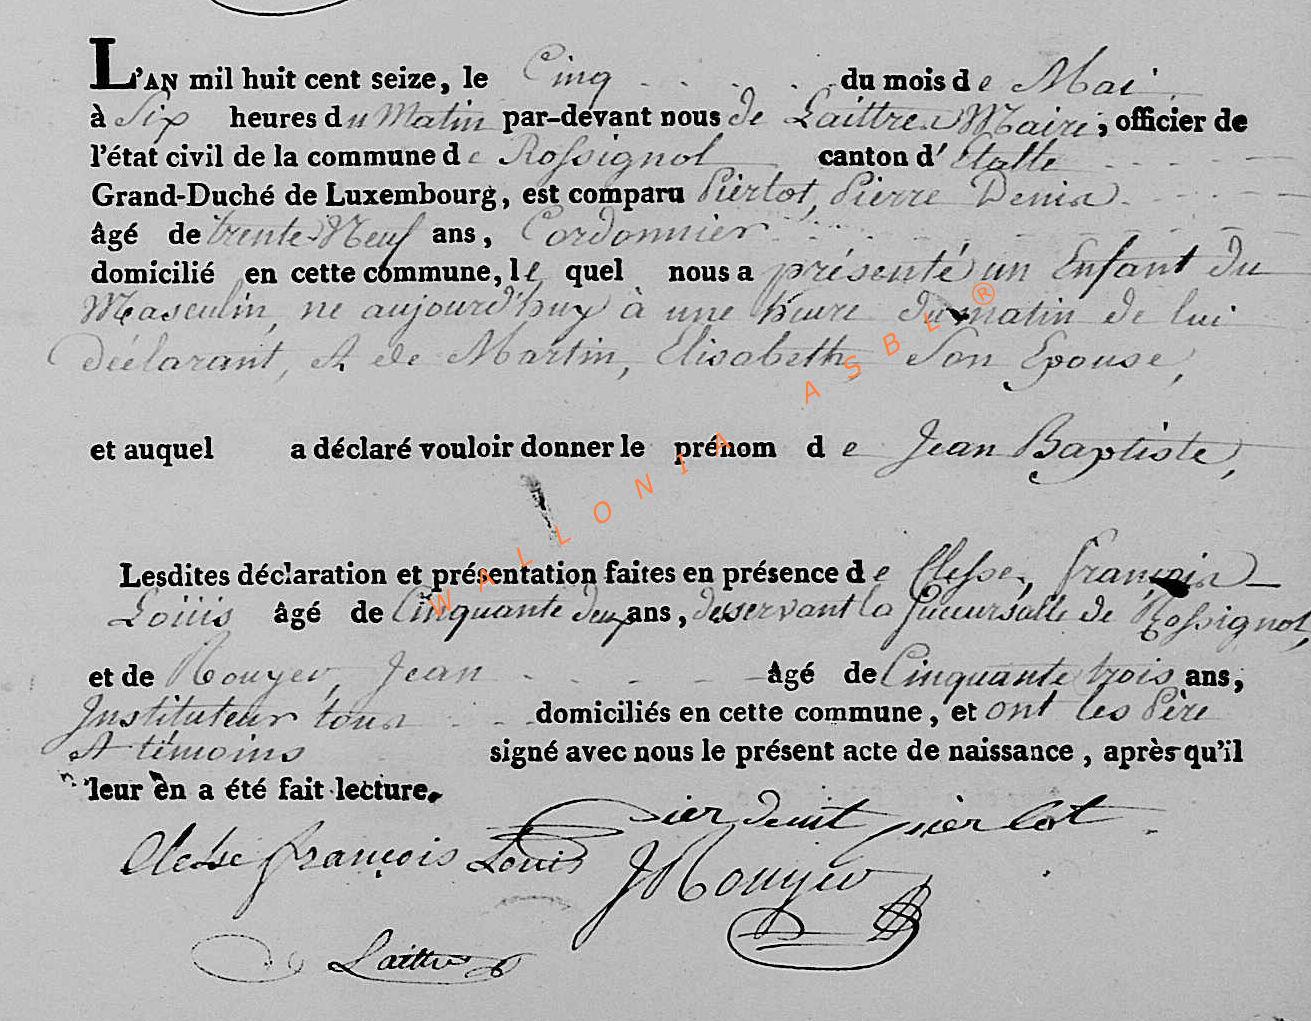 L'AN mil huit cent seize, le Cinq du mois de Mai
à Six heures du Matin par-devant nous de Laittres Maire, officier de
l'état civil de la commune de Rossignol canton d'Etalle
Grand-Duché de Luxembourg, est comparu Pierlot, Pierre Denis
âgé de trente-Neuf ans, Cordonnier
domicilié en cette commune, le quel nous a présenté un Enfant du
Masculin, ne aujourd'huy à une heure du matin de lui
déclarant, Et de Martin, Elisabeth, Son Epouse,
et auquel a déclaré vouloir donner le prénom de Jean Baptiste,
Lesdites déclaration et présentation faites en présence de Clesse, françois
Loüis âgé de Cinquante deux ans, desservant la Succursalle de Rossignol,
et de Rouyer, Jean âgé de Cinquante trois ans,
Instituteur tous domiciliés en cette commune, et ont les Père
Et témoins signé avec nous le présent acte de naissance, après qu'il
leur en a été fait lecture.
pierlot
Clesse françois Louis JRouyer
Laittres
WALLONIA ASBL ®